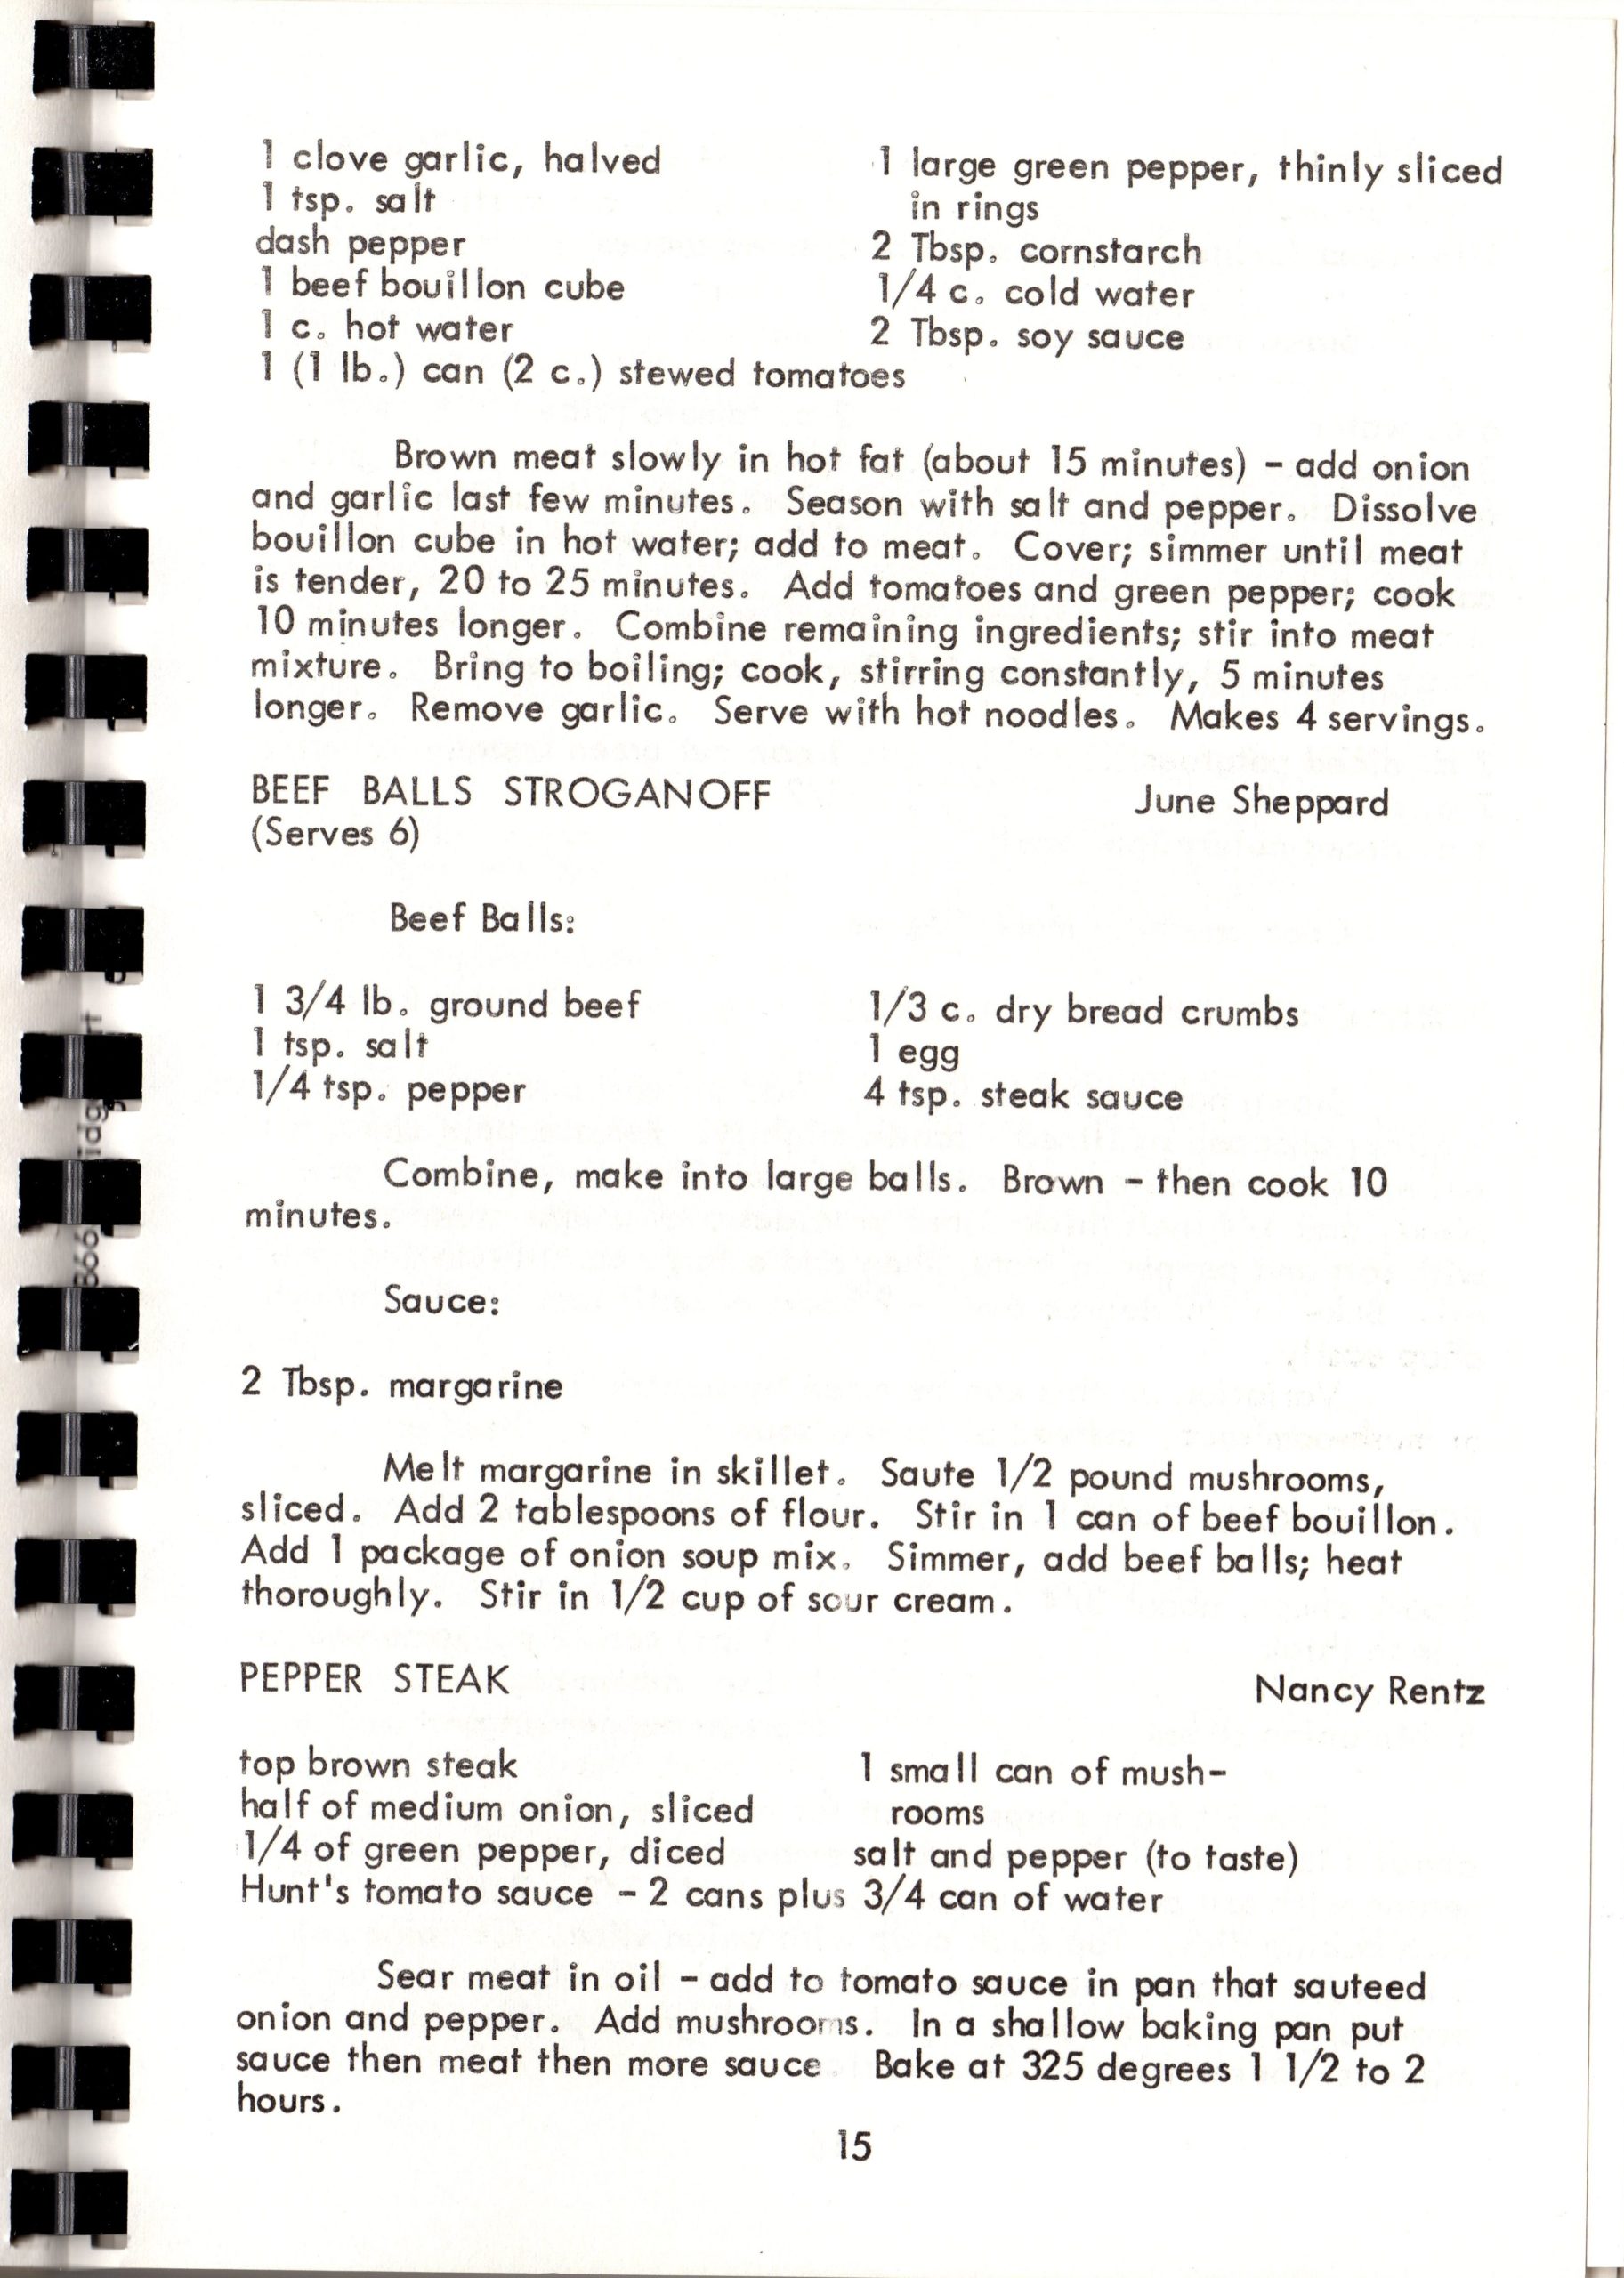 1 clove garlic, halved
1 tsp. salt
dash pepper
1 beef bouillon cube
1 c. hot water
1 (1 lb.) can (2 c.) stewed tomatoes
1 large green pepper, thinly sliced
in rings
2 Tbsp. cornstarch
1/4 c. cold water
2 Tbsp. soy sauce
Brown meat slowly in hot fat (about 15 minutes) - add onion
and garlic last few minutes. Season with salt and pepper. Dissolve
bouillon cube in hot water; add to meat. Cover; simmer until meat
is tender, 20 to 25 minutes. Add tomatoes and green pepper; cook
10 minutes longer. Combine remaining ingredients; stir into meat
mixture. Bring to boiling; cook, stirring constantly, 5 minutes
longer. Remove garlic. Serve with hot noodles. Makes 4 servings.
BEEF BALLS STROGANOFF June Sheppard
(Serves 6)
Beef Balls:
1 3/4 lb. ground beef
1 tsp. salt
1/4 tsp. pepper
1/3 c. dry bread crumbs
1 egg
4 tsp. steak sauce
Combine, make into large balls. Brown - then cook 10
minutes.
Sauce:
2 Tbsp. margarine
Melt margarine in skillet. Saute 1/2 pound mushrooms,
sliced. Add 2 tablespoons of flour. Stir in 1 can of beef bouillon.
Add 1 package of onion soup mix. Simmer, add beef balls; heat
thoroughly. Stir in 1/2 cup of sour cream.
PEPPER STEAK Nancy Rentz
top brown steak
half of medium onion, sliced
1/4 of green pepper, diced
1 small can of mush-
rooms
salt and pepper (to taste)
Hunt's tomato sauce - 2 cans plus 3/4 can of water
Sear meat in oil - add to tomato sauce in pan that sauteed
onion and pepper. Add mushrooms. In a shallow baking pan put
sauce then meat then more sauce. Bake at 325 degrees 1 1/2 to 2
hours.
15